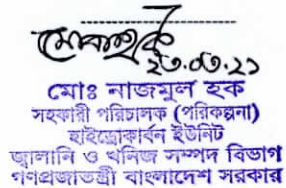 ২৩.০৩.২১
মোঃ নাজমুল হক
সহকারী পরিচালক (পরিকল্পনা)
হাইড্রোকার্বন ইউনিট
জ্বালানি ও খনিজ সম্পদ বিভাগ
গণপ্রজাতন্ত্রী বাংলাদেশ সরকার